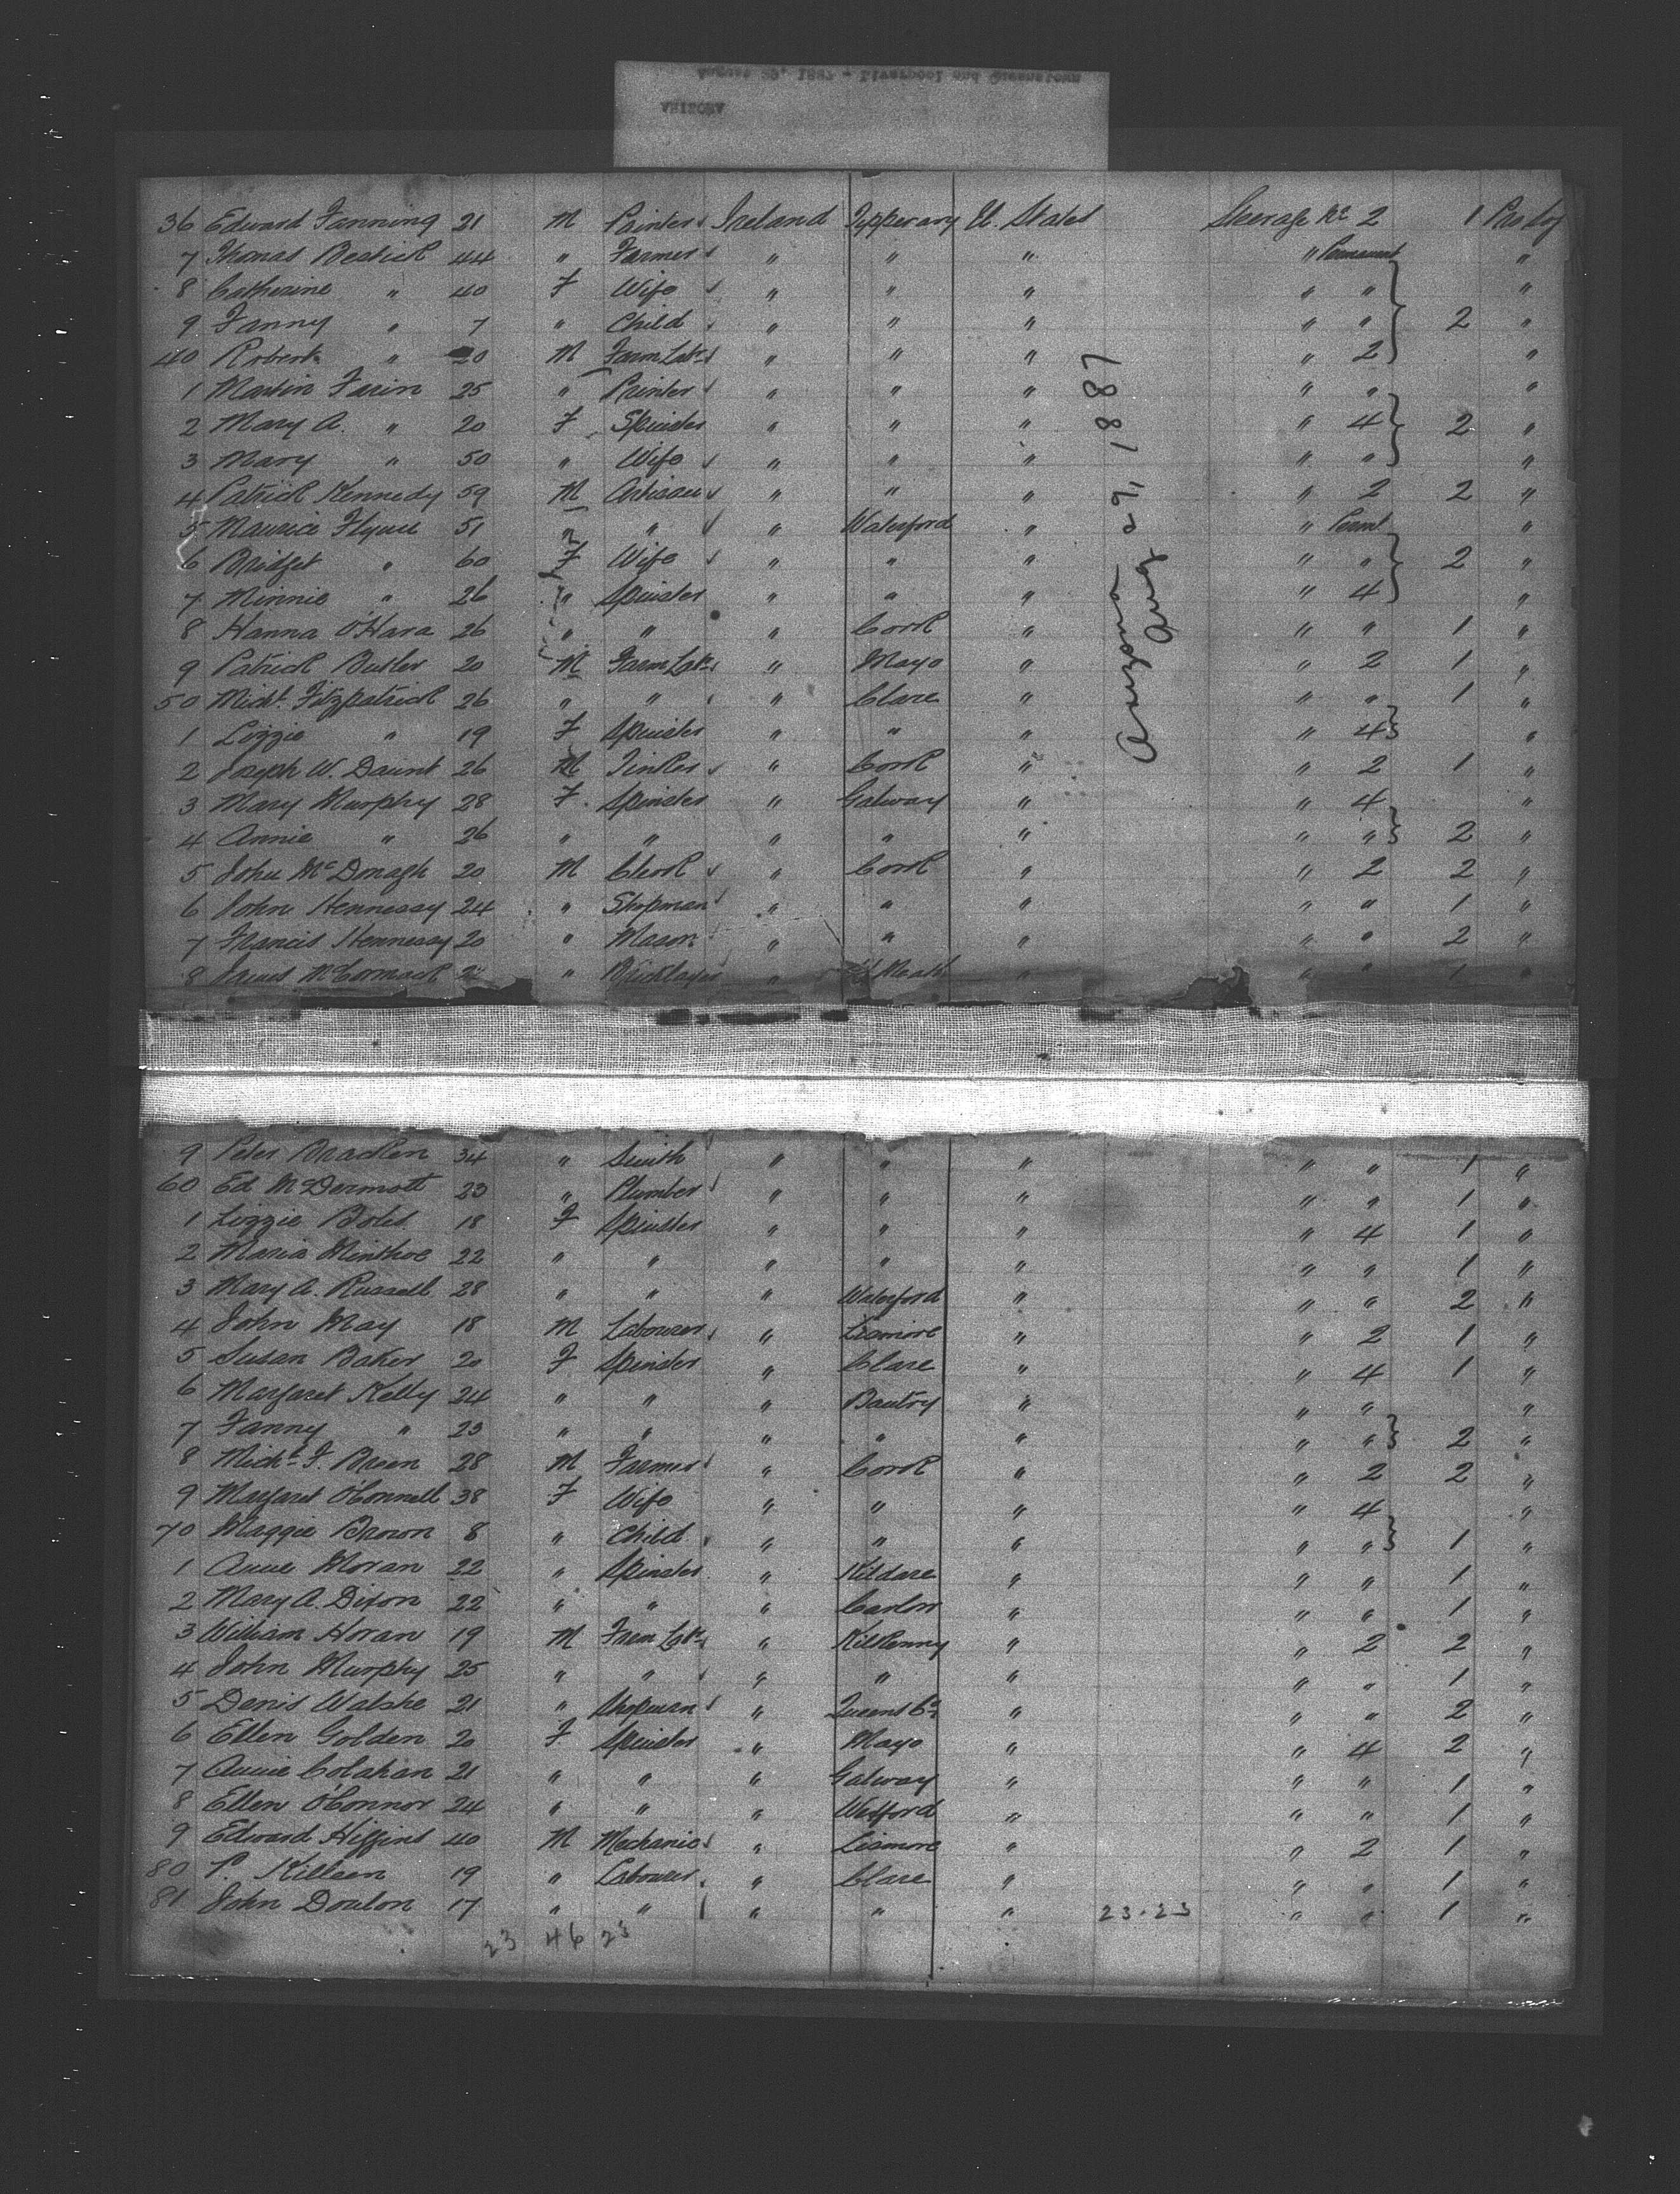 August 29, 1887 - Liverpool and Queenstown
ARIZONA
36 Edward Fanning 21 M Painter Ireland Tipperary U. States Steerage No 2 1
7 Thomas 44 " Farmer " " " " Permanent "
8 Catherine " 40 F Wife " " " " " "
9 Fanny " 7 " Child " " " " " 2 "
40 Robert " 20 M Farm Labr " " " " 2 "
1 Martin 25 " Printer " " " " " "
2 Mary A. " 20 F Spinster " " " " 4 2 "
3 Mary " 50 " Wife " " " " " "
4 Patrick Kennedy 59 M Artisan " " " " 2 2 "
5 Maurice Flynn 51 " " " Waterford " " Permt "
6 Bridget " 60 F Wife " " " " " 2 "
7 Minnie " 26 " Spinster " " " " 4 "
8 Hanna O'Hara 26 " " " Cork " " " 1 "
9 Patrick Butler 20 M Farm Labr " Mayo " " 2 1 "
50 Michl. Fitzpatrick 26 " " " Clare " " " 1 "
1 Lizzie " 19 F Spinster " " " " 4 "
2 Joseph W. Daunt 26 M " Cork " " 2 1 "
3 Mary Murphy 28 F Spinster " Galway " " 4 "
4 Annie " 26 " " " " " " " 2 "
5 John McDonagh 20 M Clerk " Cork " " 2 2 "
6 John Hennessy 24 " Shopman " " " " " 1 "
7 Francis Hennessy 20 " Mason " " " " " 2 "
8 James McCormack " Bricklayer " W Meath " " " 1 "
Arizona Aug 29, 1887
9 Peter Bracken 34 " Smith " " " " " 1 "
60 Ed McDermott 23 " Plumber " " " " " 1 "
1 Lizzie 18 F Spinster " " " " 4 1 "
2 Maria 22 " " " " " " " 1 "
3 Mary A. Russell 28 " " " Waterford " " " 2 "
4 John May 18 M Labourer " Lismore " " 2 1 "
5 Susan Baker 20 F Spinster " Clare " " 4 1 "
6 Margaret Kelly 24 " " " Bantry " " " "
7 Fanny " 23 " " " " " " " 2 "
8 Michl F. Breen 28 M Farmer " Cork " " 2 2 "
9 Margaret O'Connell 38 F Wife " " " " 4 "
70 Maggie Brown 8 " Child " " " " " 1 "
1 Anne Moran 22 " Spinster " Kildare " " " 1 "
2 Mary A. Dixon 22 " " " Carlow " " " 1 "
3 William Horan 19 M Farm Labr " Kilkenny " " 2 2 "
4 John Murphy 25 " " " " " " " 1 "
5 Denis Walshe 21 " Shopman " Queens Co " " " 2 "
6 Ellen Golden 20 F Spinster " Mayo " " 4 2 "
7 Annie Colahan 21 " " " Galway " " " 1 "
8 Ellen O'Connor 24 " " " Wexford " " " 1 "
9 Edward Higgins 40 M Mechanic " Lismore " " 2 1 "
80 P. Killeen 19 " Labourer " Clare " " " 1 "
81 John Donlon 17 " " " " " 23.23 " " 1 "
23 46 23